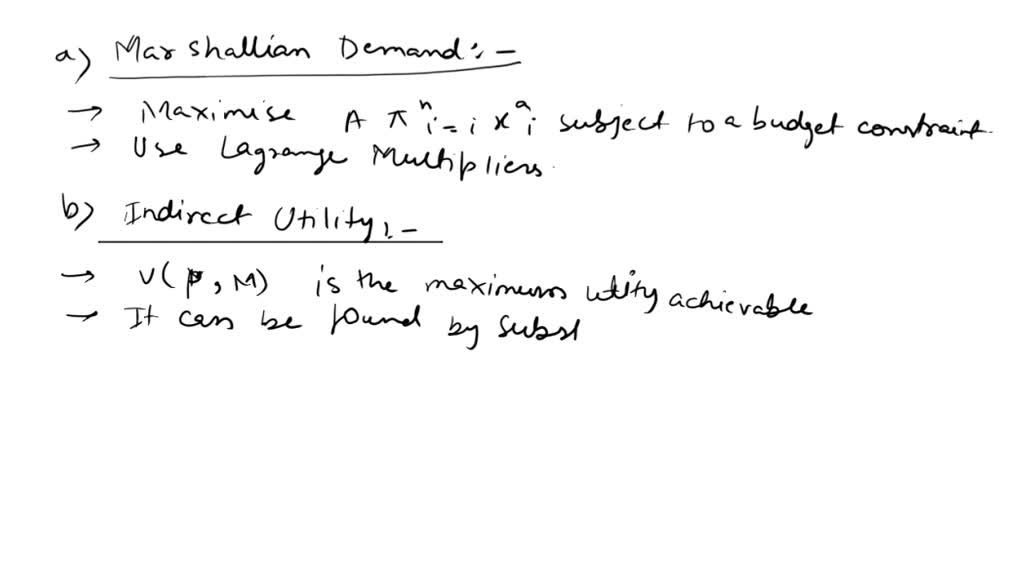 a) Marshallian Demand :-
→ Maximise A π^n_{i=i} x^a_i subject to a budget constraint.
→ Use Lagrange Multipliers.
b) Indirect Utility :-
→ V(p, M) is the maximum utility achievable
→ It can be found by subst